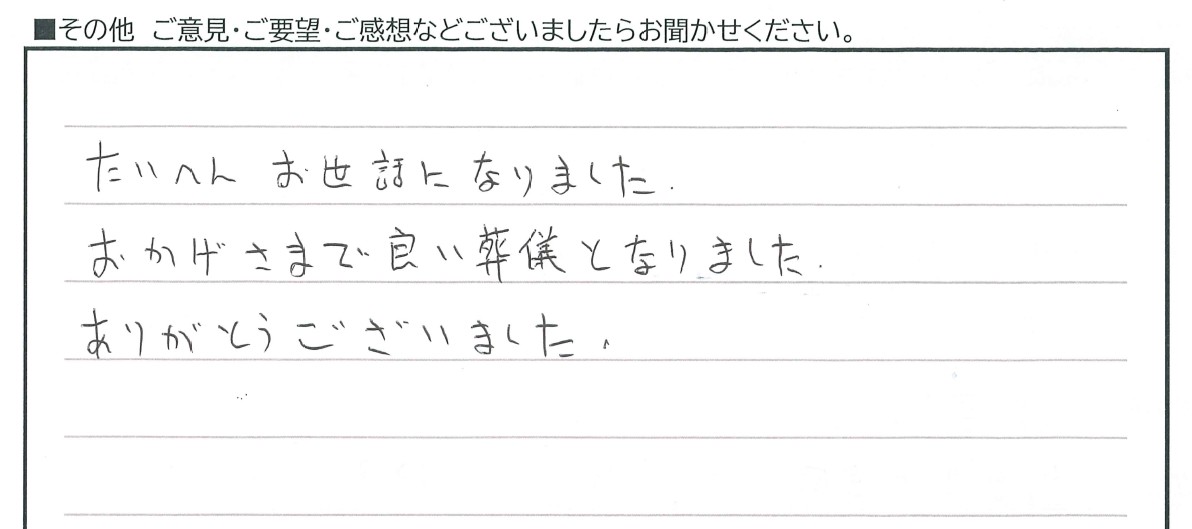 ■その他 ご意見・ご要望・ご感想などございましたらお聞かせください。
たいへん お世話に なりました.
おかげさまで 良い葬儀となりました.
ありがとうございました.